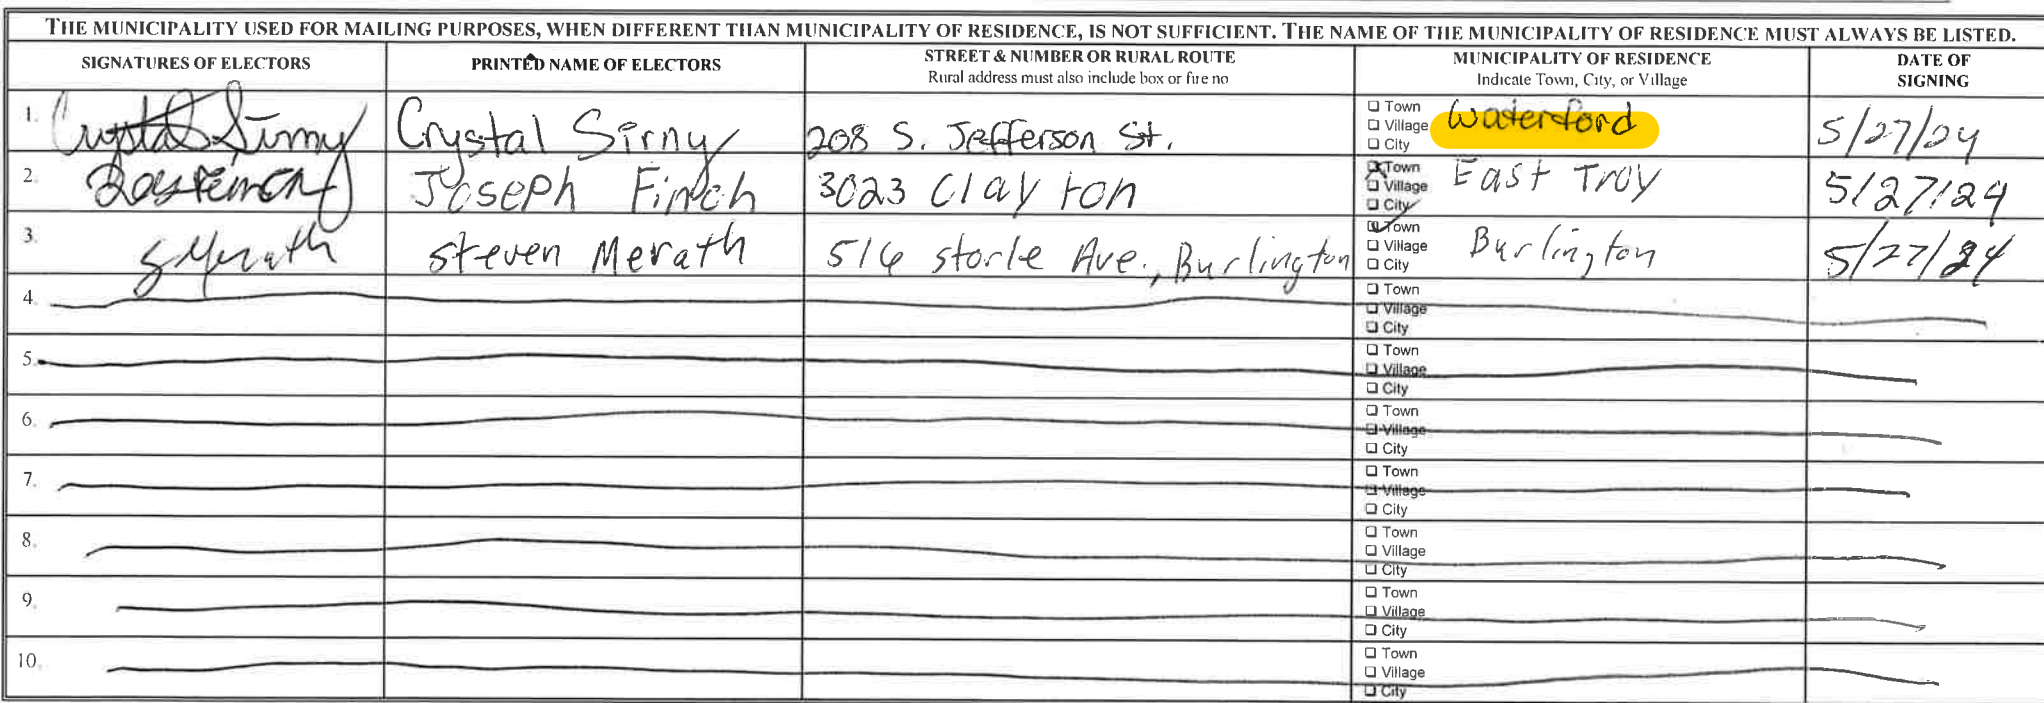 THE MUNICIPALITY USED FOR MAILING PURPOSES, WHEN DIFFERENT THAN MUNICIPALITY OF RESIDENCE, IS NOT SUFFICIENT. THE NAME OF THE MUNICIPALITY OF RESIDENCE MUST ALWAYS BE LISTED.
SIGNATURES OF ELECTORS
PRINTED NAME OF ELECTORS
STREET & NUMBER OR RURAL ROUTE
Rural address must also include box or fire no
MUNICIPALITY OF RESIDENCE
Indicate Town, City, or Village
DATE OF
SIGNING
1. Crystal Sirny Crystal Sirny 208 S. Jefferson St.
Town
Village
City
Waterford 5/27/24
2. Joseph Finch 3023 Clayton
Town
Village
City
East Troy 5/27/24
3. S Merath Steven Merath 516 storle Ave., Burlington
Town
Village
City
Burlington 5/27/24
4.
Town
Village
City
5.
Town
Village
City
6.
Town
Village
City
7.
Town
Village
City
8.
Town
Village
City
9.
Town
Village
City
10.
Town
Village
City